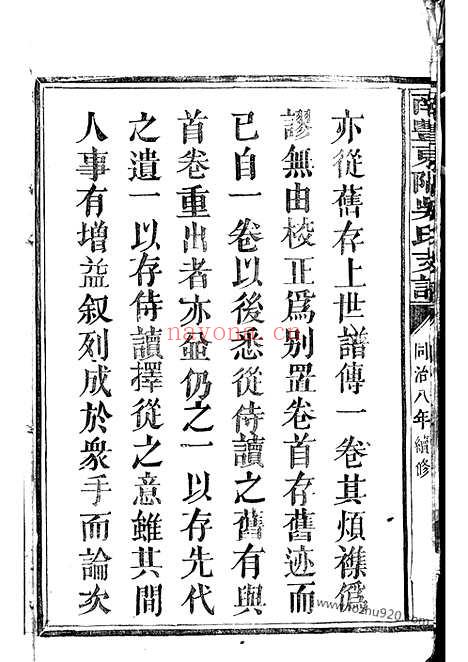 南豐東隅吳氏支譜
同治八年續修
亦從舊存上世譜傳一卷其煩襍僞
謬無由校正爲别置卷首存舊迹而
已自一卷以後悉從侍讀之舊有與
首卷重出者亦並仍之一以存先代
之遺一以存侍讀擇從之意雖其間
人事有增益叙列成於衆手而論次
nayona.cn
www.fozhu920.com